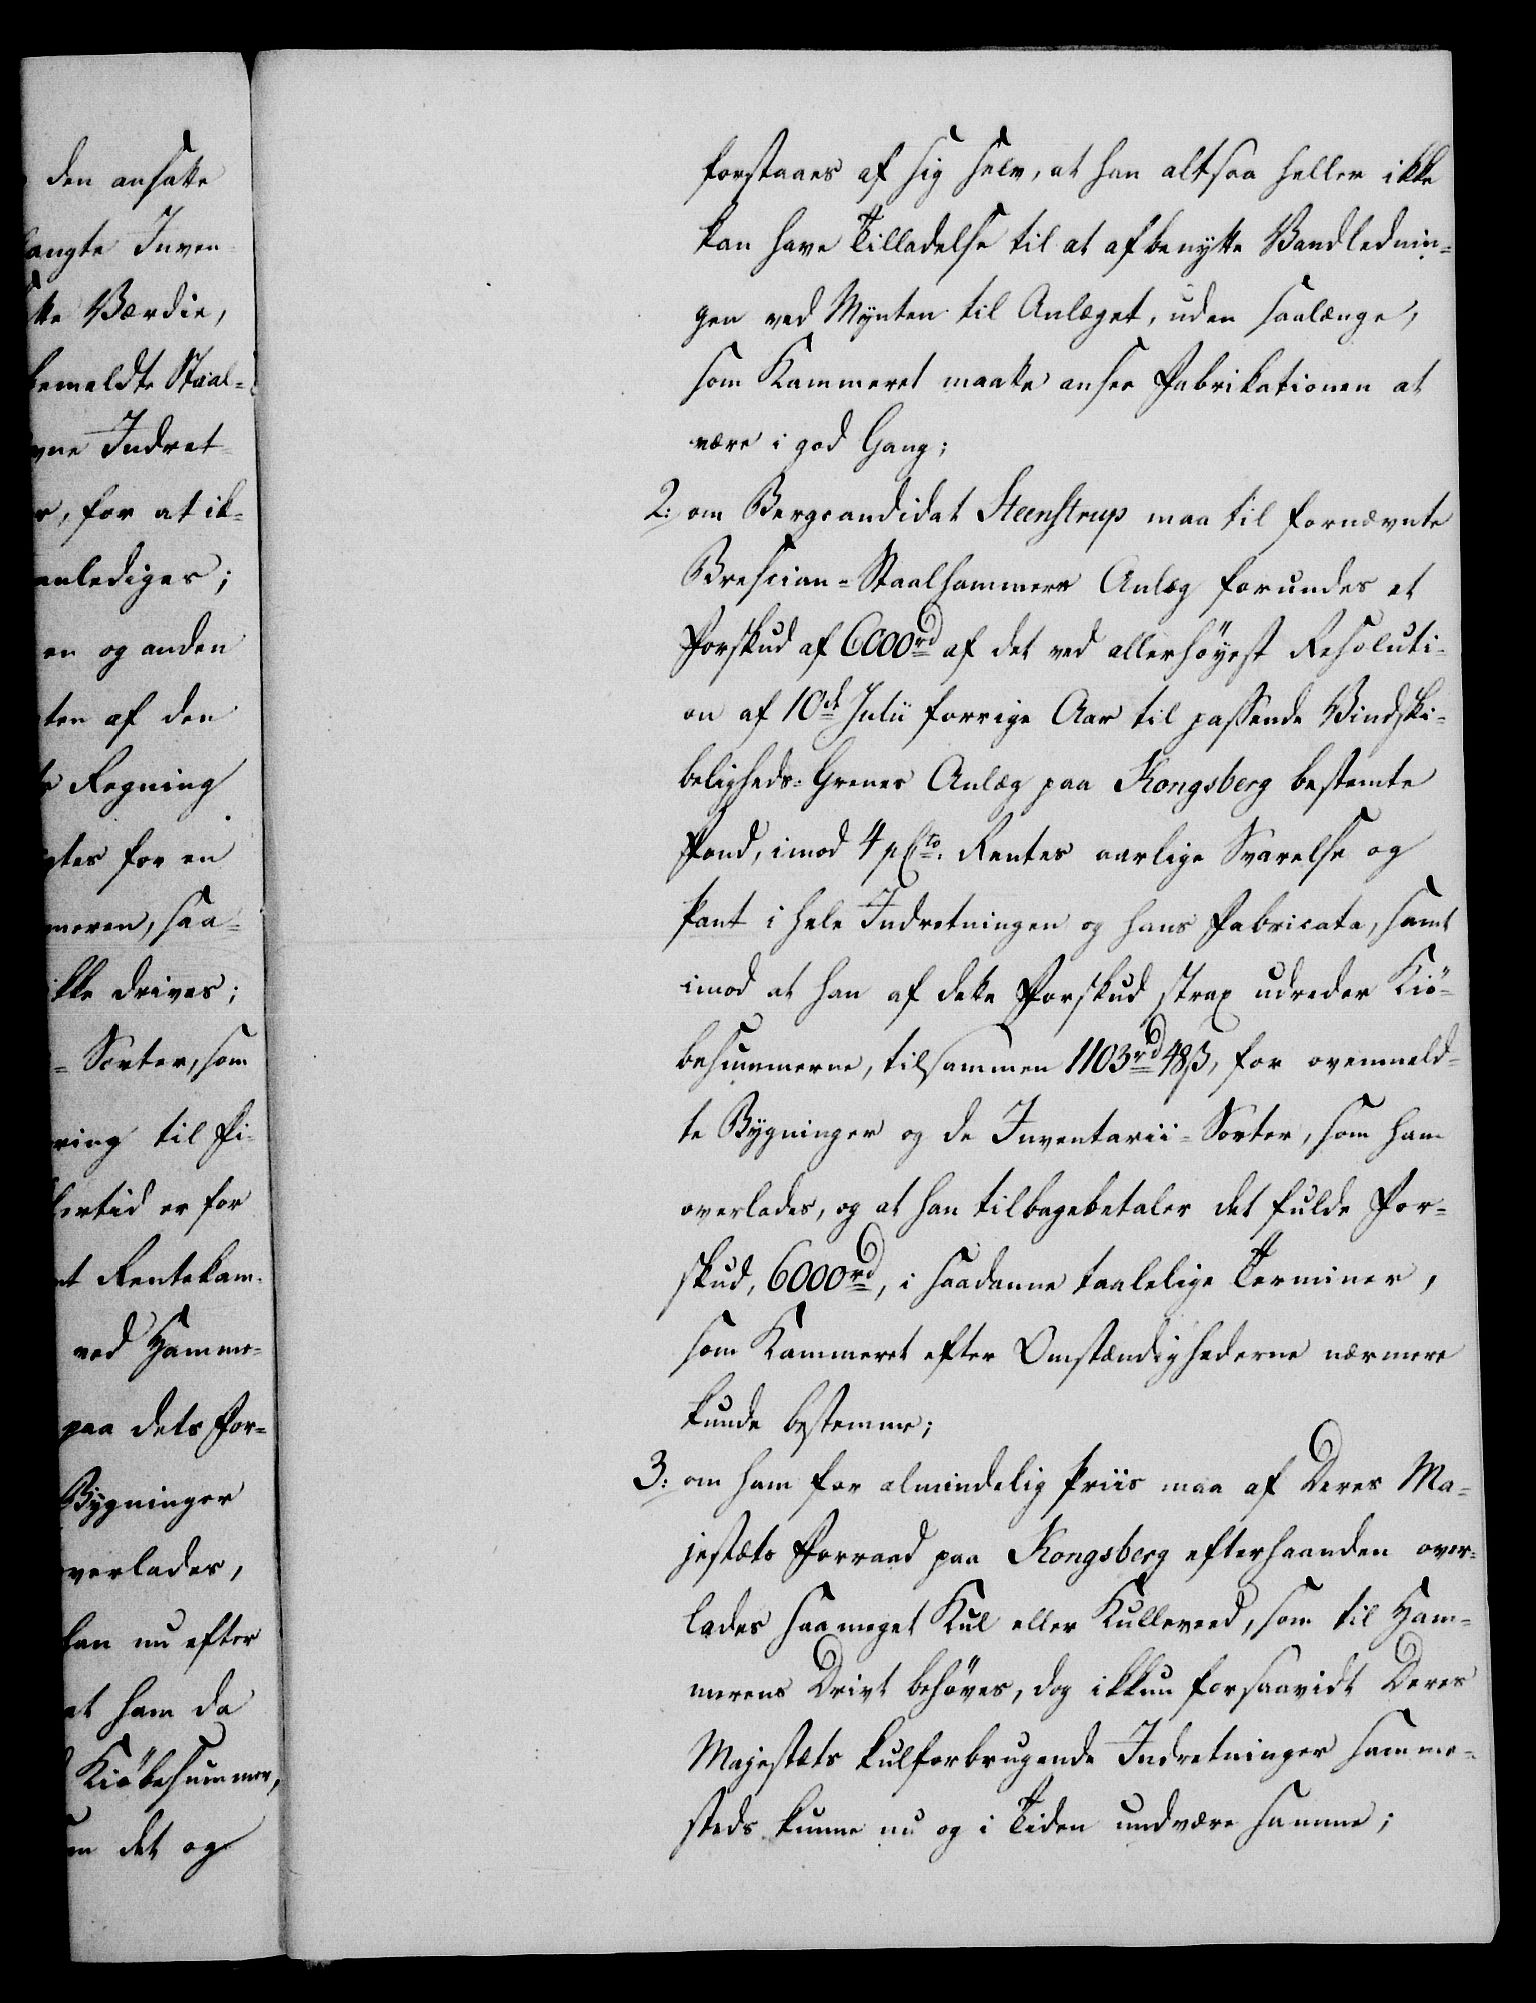 den ansatte
langte Inven
tte Værdie,
bemeldte Staal-
vne Indret-
r, for at ik-
anlediges;
en og anden
ten af den
Regning
gtes for en
meren, saa-
ikke drives;
- Sorter, som
ring til Fi-
lertid er for
nt Rentekam-
ved Hamme-
paa dets For-
Bygninger
overlades,
han nu efter
at ham da
Kiöbesummer,
det og
forstaaes af sig selv, at han altsaa heller ikke
kan have Tilladelse til at afbenytte Vandlednin-
gen ved Mynten til Anlæget, uden saalænge,
som Kammeret maatte ansee Fabrikationen at
være i god Gang;
2: om Bergcandidat Steenstrup maa til fornævnte
Brescian-Staalhammers Anlæg forundes et
Forskud af 6000 rd af det ved allerhöyest Resoluti-
on af 10de Julii forrige Aar til passende Vindski-
beligheds-Grenes Anlæg paa Kongsberg bestemte
Fond, imod 4 pCto. Rentes aarlige Svarelse og
Pant i hele Indretningen og hans Fabricata, samt
imod at han af dette Forskud strax udreder Kiö-
besummerne, tilsammen 1103 rd 48 ß, for ovenmeld-
te Bygninger og de Inventarii-Sorter, som ham
overlades, og at han tilbagebetaler det fulde For-
skud, 6000 rd, i saadanne taalelige Terminer,
som Kammeret efter Omstændighederne nærmere
kunde bestemme;
3: om ham for almindelig Priis maa af Deres Ma-
jestæts Forraad paa Kongsberg efterhaanden over-
lades saa meget Kul eller Kulleveed, som til Ham-
merens Drivt behöves, dog ikkun forsaavidt Deres
Majestæts kulforbrugende Indretninger samme-
steds kunne nu og i Tiden undvære samme;